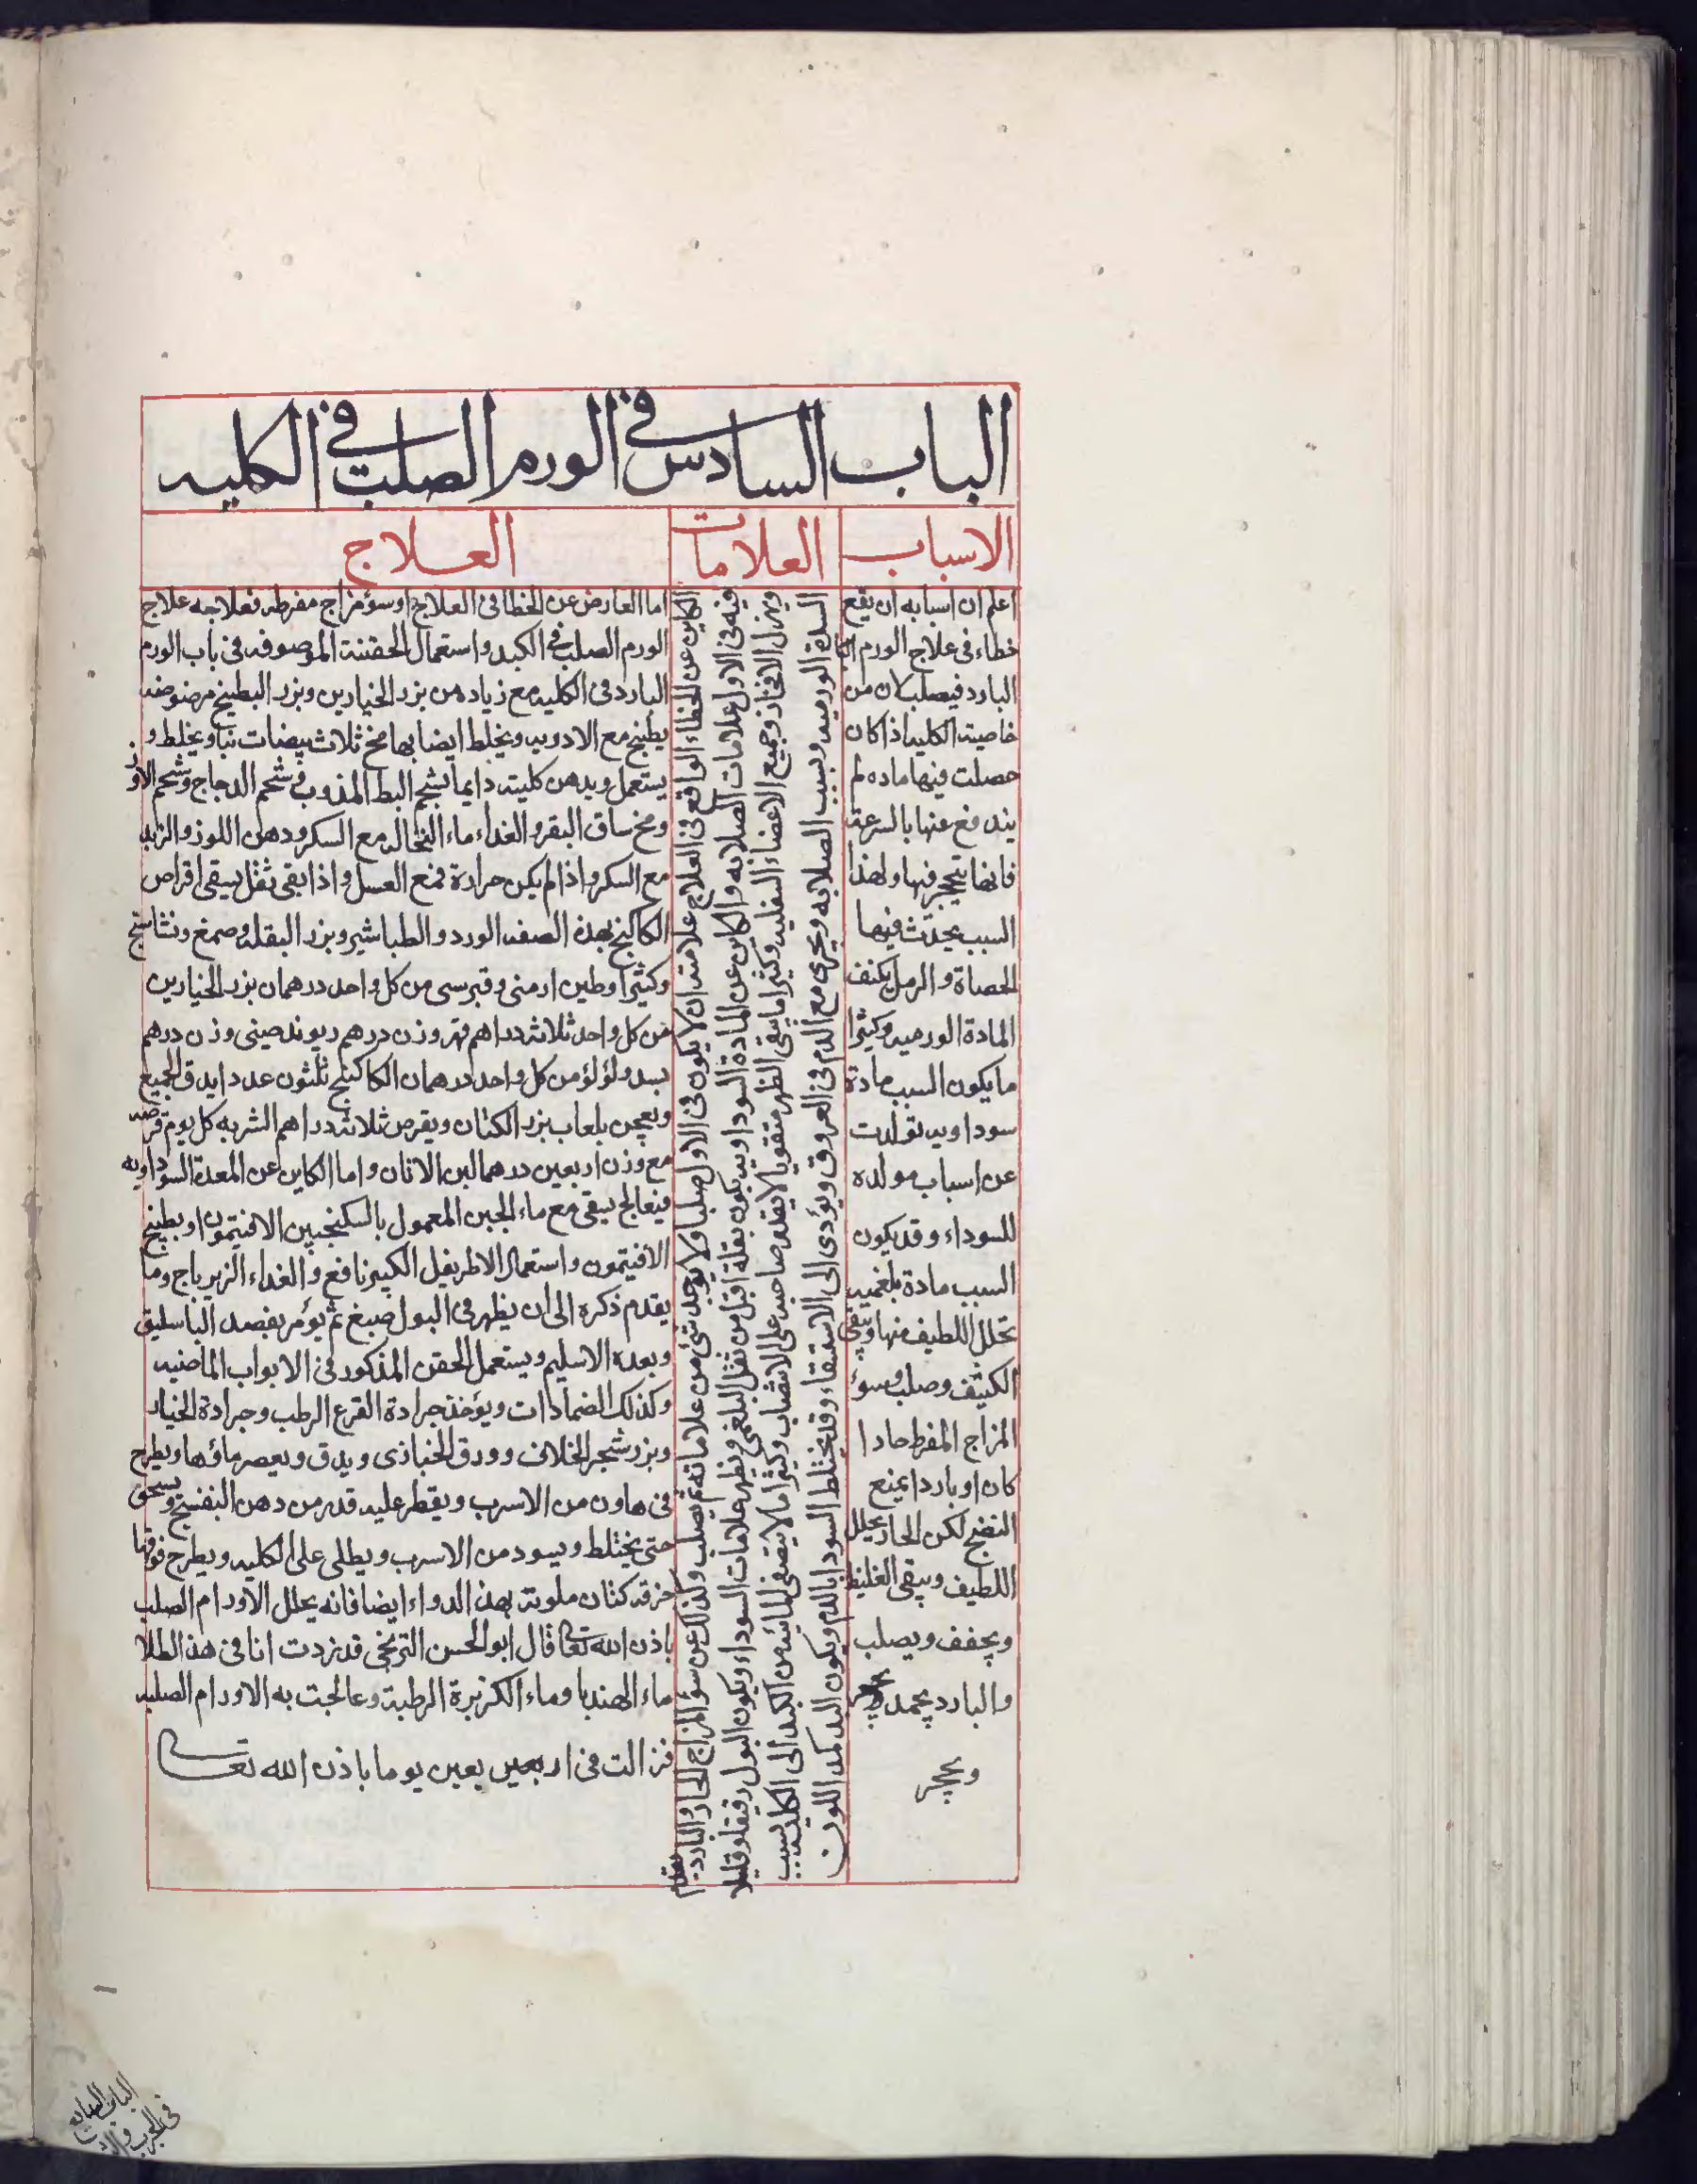 الباب السادس في الورم الصلب في الكليه
الاسباب
العلامات
العلاج
اعلم ان اسبابه ان يقع
خطاء فى علاج الورم
البارد فيصلب لان من
خاصيته الكليه اذا كان
حصلت فيها ماده لم
يندفع عنها بالسرعة
فانها تتحجر فيها ولهذا
السبب يحدث فيها
الحصاة والرمل يكنف
المادة الورميه وكثيرا
ما يكون السبب مادة
سوداويه تولدت
عن اسباب مولده
للسوداء وقد يكون
السبب مادة بلغميه
تحلل اللطيف منها وبقى
الكثيف وصلب وسوء
المزاج المفرط حادا
كان او باردا يمنع
النضج لكن الحار يحلل
اللطيف ويبقى الغليظ
ويجفف ويصلب
والبارد يجمد
ويحجر
الكاين عن الخطاء الواقع فى العلاج علامته ان لا يكون فى الاول صلبا ولا يوجد شى من علاماته ثم يصلب وكذلك عن سوء المزاج الحار والبارد يتقدم
فيه فى الاول علامات الصلابه والكاين عن المادة السوداويه يكون بقلة اقل من ثقل البلغمى ويظهر علامات السوداء ويكون البول رقيقا وقليلا
ويهزل الافخاذ وجميع الاعضاء السفليه وكثيرا ما يبقى الظهر متقويا لا يقدر صاحبه على الانتصاب وكثيرا ما لا يتصفى المائيه من الكبد الى الكليه بسبب
السدة الورميه وبسبب الصلابه ويجرى مع الدم فى العروق ويؤدى الى الاستسقاء وقد يختلط السودا بالدم ويكون البدن كمد اللون
اما العارض عن الخطا فى العلاج او سوء مزاج مفرط فعلاجه علاج
الورم الصلب فى الكبد واستعمال الحقنة الموصوفه فى باب الورم
البارد فى الكليه مع زياده من بزر الخيارين وبزر البطيخ مرضوضه
يطبخ مع الادويه ويخلط ايضا بها مخ ثلاث بيضات نيا ويخلط و
يستعمل ويدهن كليته دايما بشحم البط المذوب فى شحم الدجاج وشحم الاوز
ومخ ساق البقر والغداء ماء النخاله مع السكر ودهن اللوز والزبد
مع السكر واذا لم يكن حرارة فمع العسل واذا بقى ثقل يسقى اقراص
الكاكنج بهذه الصفه الورد والطباشير وبزر البقله وصمغ ونشاستج
وكثيرا وطين ارمنى وقبرسى من كل واحد درهمان بزر الخيارين
من كل واحد ثلاثه دراهم وزن درهم ريوند صينى وزن درهم
بسد ولؤلؤ من كل واحد درهمان الكاكنج ثلثون عددا يدق الجميع
ويعجن بلعاب بزر الكتان ويقرص ثلاثة دراهم الشربه كل يوم قرصه
مع وزن اربعين درهما لبن الاتان واما الكاين عن المعدة السوداويه
فيعالج بسقى مع ماء الجبن المعمول بالسكنجبين الافتيمون او بطبيخ
الافتيمون واستعمال الاطريفل الكبير نافع والغداء الزيرباج وما
يقدم ذكره الى ان يظهر فى البول صبغ ثم يؤمر بفصد الباسليق
وبعده الاسليم ويستعمل الحقن المذكور فى الابواب الماضيه
وكذلك الضمادات ويؤخذ جرادة القرع الرطب وجرادة الخيار
وبزر شجر الخلاف وورق الخبازى ويدق ويعصر ماؤها ويطرح
فى هاون من الاسرب ويقطر عليه قدر من دهن البنفسج ويسحق
حتى يختلط ويسود من الاسرب ويطلى على الكليه ويطرح فوقها
خرقه كتان ملوثة بهذ الدواء ايضا فانه يحلل الاورام الصلب
باذن الله تعالى قال ابو الحسن الترنجى قد زدت انا فى هذ الطلا
ماء الهندبا وماء الكزبرة الرطبة وعالجت به الاورام الصلبه
فزالت فى اربعين يعين يوما باذن الله تعالى
الباب السابع
فى الجرب